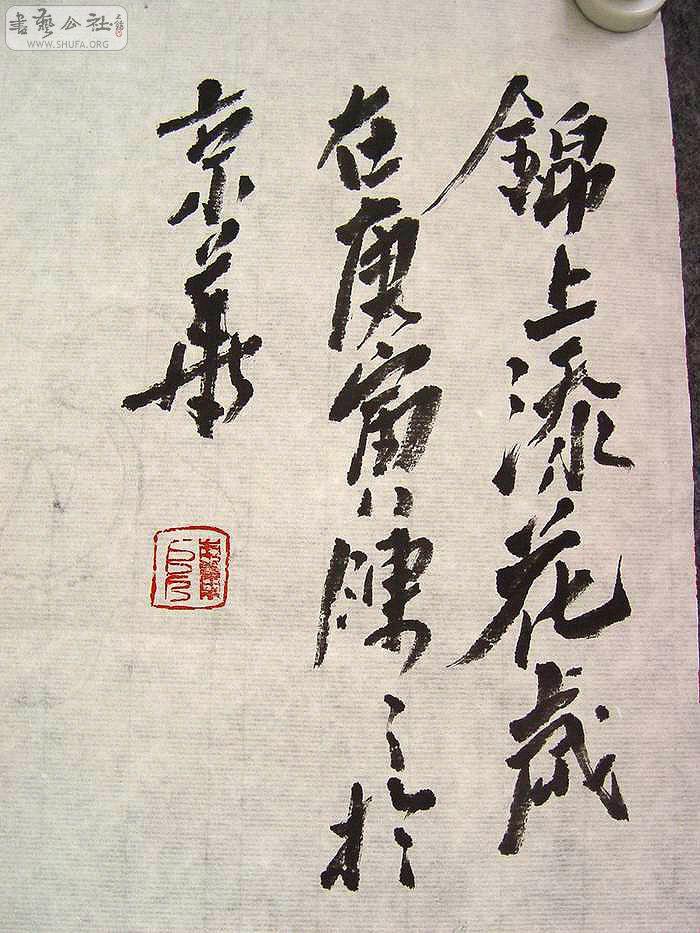 錦上添花歲
在庚寅陳之於
京華
書藝公社
WWW.SHUFA.ORG